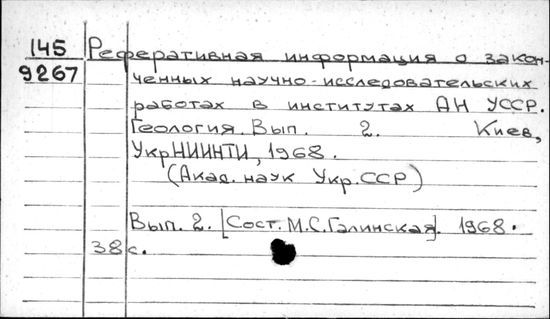 145 Реферативная информация о закон-
9267 ченных научно-исследовательских
работах в институтах АН УССР.
Геология. Вып. 2. Киев,
УкрНИИНТИ, 1968.
(Акад. наук Укр.ССР)
Вып. 2. [Сост. М.С.Галинская]. 1968.
38 с.